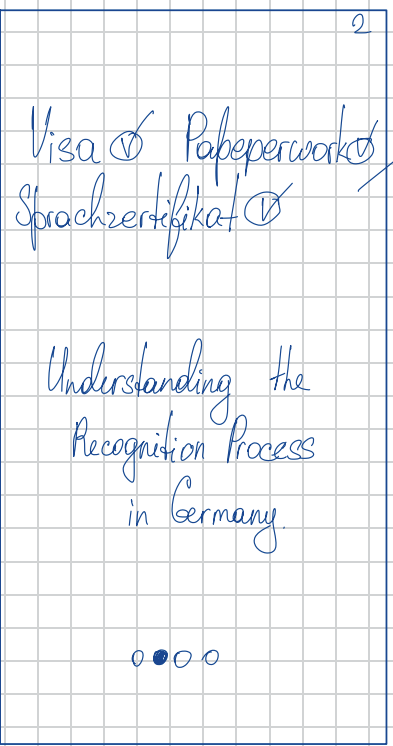 2
Visa Ⓥ Papeperwork Ⓥ
Sprachzertifikat Ⓥ
Understanding the
Recognition Process
in Germany.